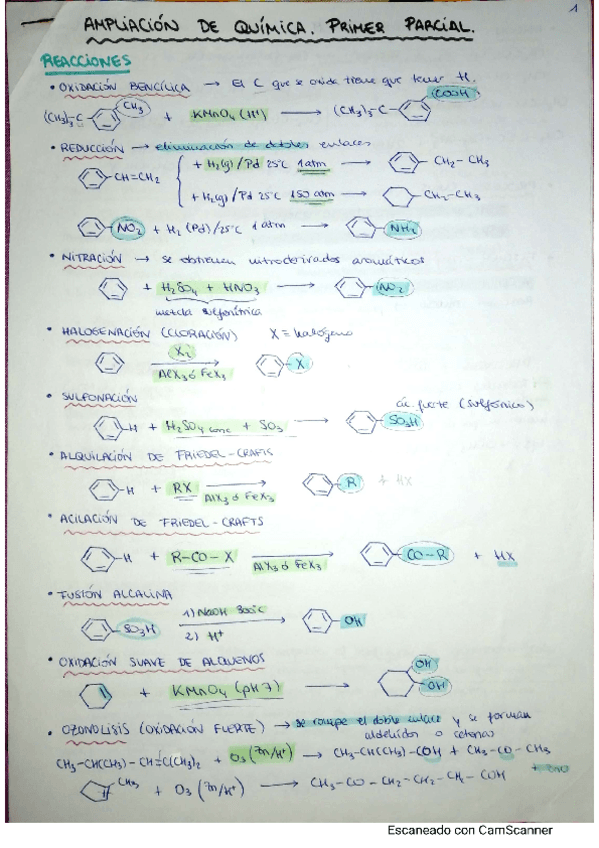 1
AMPLIACIÓN DE QUÍMICA. PRIMER PARCIAL.
REACCIONES
• OXIDACIÓN BENCÍLICA → El C que se oxida tiene que tener H.
(CH3)3-C CH3 + KMnO4 (H+) → (CH3)3-C COOH
• REDUCCIÓN → eliminación de dobles enlaces
CH=CH2 + H2(g)/Pd 25°C 1 atm → CH2-CH3
+ H2(g)/Pd 25°C 150 atm → CH2-CH3
NO2 + H2 (Pd)/25°C 1 atm → NH2
• NITRACIÓN → se obtienen nitroderivados aromáticos
+ H2SO4 + HNO3 → NO2
mezcla sulfonítrica
• HALOGENACIÓN (CLORACIÓN) X = halógeno
X2
AlX3 ó FeX3 → X
• SULFONACIÓN
ác. fuerte (sulfónico)
H + H2SO4 conc + SO3 → SO3H
• ALQUILACIÓN DE FRIEDEL-CRAFTS
H + RX AlX3 ó FeX3 → R + HX
• ACILACIÓN DE FRIEDEL-CRAFTS
H + R-CO-X AlX3 ó FeX3 → CO-R + HX
• FUSIÓN ALCALINA
SO3H 1) NaOH 300°C → OH
2) H+
• OXIDACIÓN SUAVE DE ALQUENOS
+ KMnO4 (pH 7) → OH
OH
• OZONOLISIS (OXIDACIÓN FUERTE) → se rompe el doble enlace y se forman
aldehídos o cetonas
CH3-CH(CH3)-CH=C(CH3)2 + O3 (Zn/H+) → CH3-CH(CH3)-COH + CH3-CO-CH3
CH3 + O3 (Zn/H+) → CH3-CO-CH2-CH2-CH2-COH + ZnO
Escaneado con CamScanner